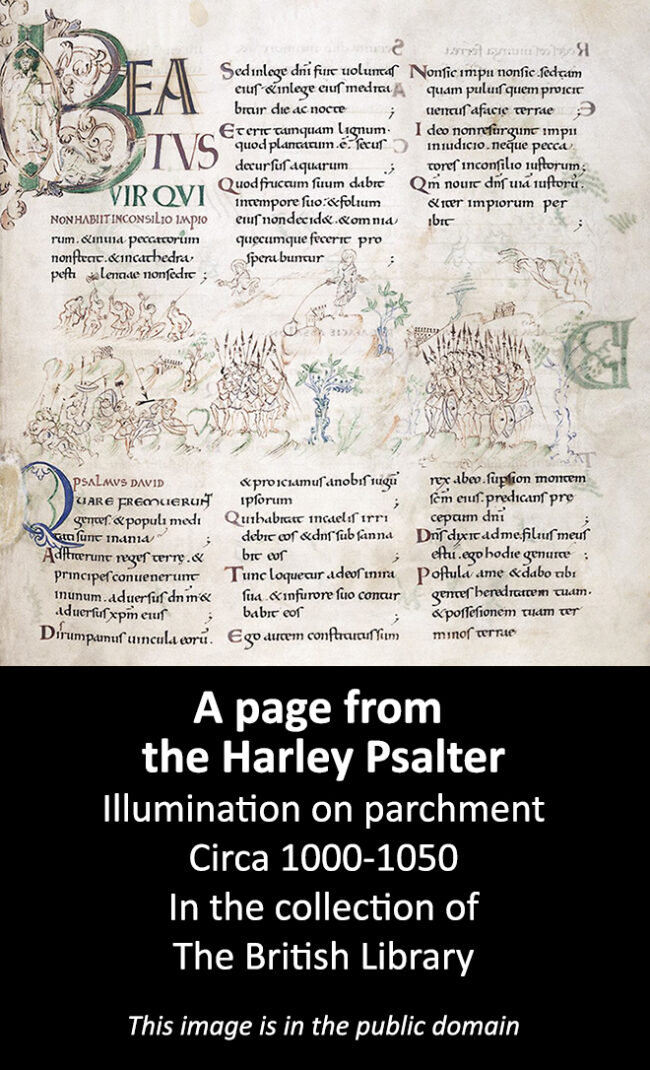 BEA
TVS
VIR QVI
NON HABIIT IN CONSILIO IMPIO
rum. & in uia peccatorum
non stetit. & in cathedra
pesti lentiae non sedit ;
Sed in lege dñi fuit uoluntas
eius & in lege eius medita
bitur die ac nocte ;
Et erit tamquam lignum
quod plantatum .ē. secus
decursus aquarum ;
Quod fructum suum dabit
in tempore suo. & folium
eius non decid&. & omnia
quecumque fecerit pro
spera buntur ;
Non sic impii non sic. sed tam
quam puluis quem proicit
uentus a facie terrae ;
Ideo non resurgunt impii
in iudicio. neque pecca
tores in consilio iustorum ;
Qm nouit dñs uiā iustorū.
& iter impiorum per
ibit ;
PSALMVS DAVID
QUARE FREMUERUNT
gentes. & populi medi
tati sunt inania ;
Adstiterunt reges terrę. &
principes conuenerunt
in unum. aduersus dnm &
aduersus xpm eius ;
Dirumpamus uincula eorū.
& proiciamus a nobis iugū
ipsorum ;
Qui habitat in caelis irri
debit eos & dñs subsanna
bit eos ;
Tunc loquetur ad eos in ira
sua. & in furore suo contur
babit eos ;
Ego autem constitutus sum
rex ab eo. sup sion montem
scm eius. predicans pre
ceptum dñi ;
Dñs dixit ad me. filius meus
es tu. ego hodie genui te ;
Postula a me & dabo tibi
gentes hereditatem tuam.
& possesionem tuam ter
minos terrae
A page from
the Harley Psalter
Illumination on parchment
Circa 1000-1050
In the collection of
The British Library
This image is in the public domain